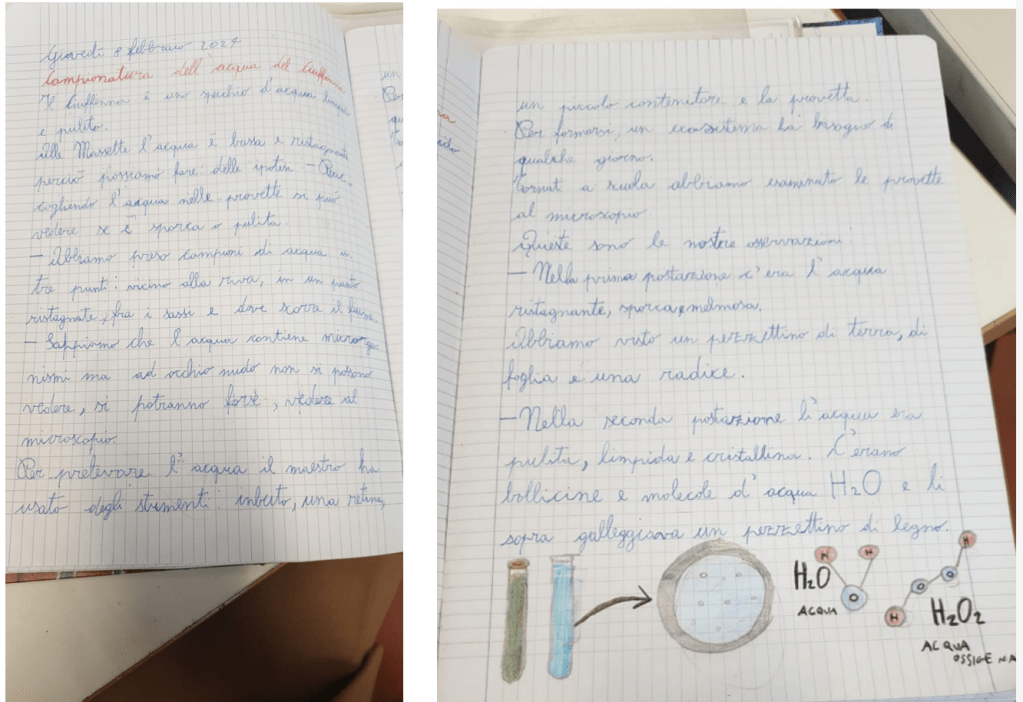 Giovedì 8 febbraio 2024
Campionatura dell'acqua del Ciuffenna
Il Ciuffenna è uno specchio d'acqua limpido
e pulito.
Alle Massette l'acqua è bassa e ristagnante
perciò possiamo fare delle ipotesi - Rac-
cogliendo l'acqua nelle provette si può
vedere se è sporca o pulita.
- Abbiamo preso campioni di acqua in
tre punti: vicino alla riva, in un punto
ristagnate, fra i sassi e dove scorre il
- Sappiamo che l'acqua contiene microrga
nismi ma ad occhio nudo non si possono
vedere, si potranno forse, vedere al
microscopio.
Per prelevare l'acqua il maestro ha
usato degli strumenti: inbuto, una retina,
un piccolo contenitore e la provetta.
Per formarsi, un ecosistema ha bisogno di
qualche giorno.
Tornati a scuola abbiamo esaminato le provette
al microscopio.
Queste sono le nostre osservazioni:
- Nella prima postazione c'era l'acqua
ristagnante, sporca e melmosa.
Abbiamo visto un pezzettino di terra, di
foglia e una radice.
- Nella seconda postazione l'acqua era
pulita, limpida e cristallina. C'erano
bollicine e molecole d'acqua H2O e lì
sopra galleggiava un pezzettino di legno.
H2O
ACQUA
H H
O
H
O O
H
H2O2
ACQUA
OSSIGENA